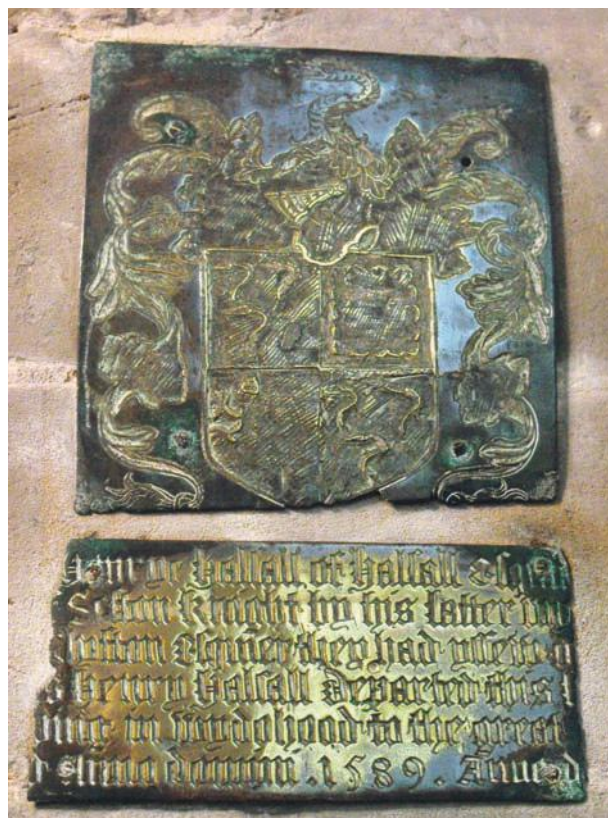 Henrye halsall of halsall Esquie
Sefton Knight by his latter
Esquier they had yssew
henry halsall Departed this
in wydohood to the great
Anno domini . 1589 .